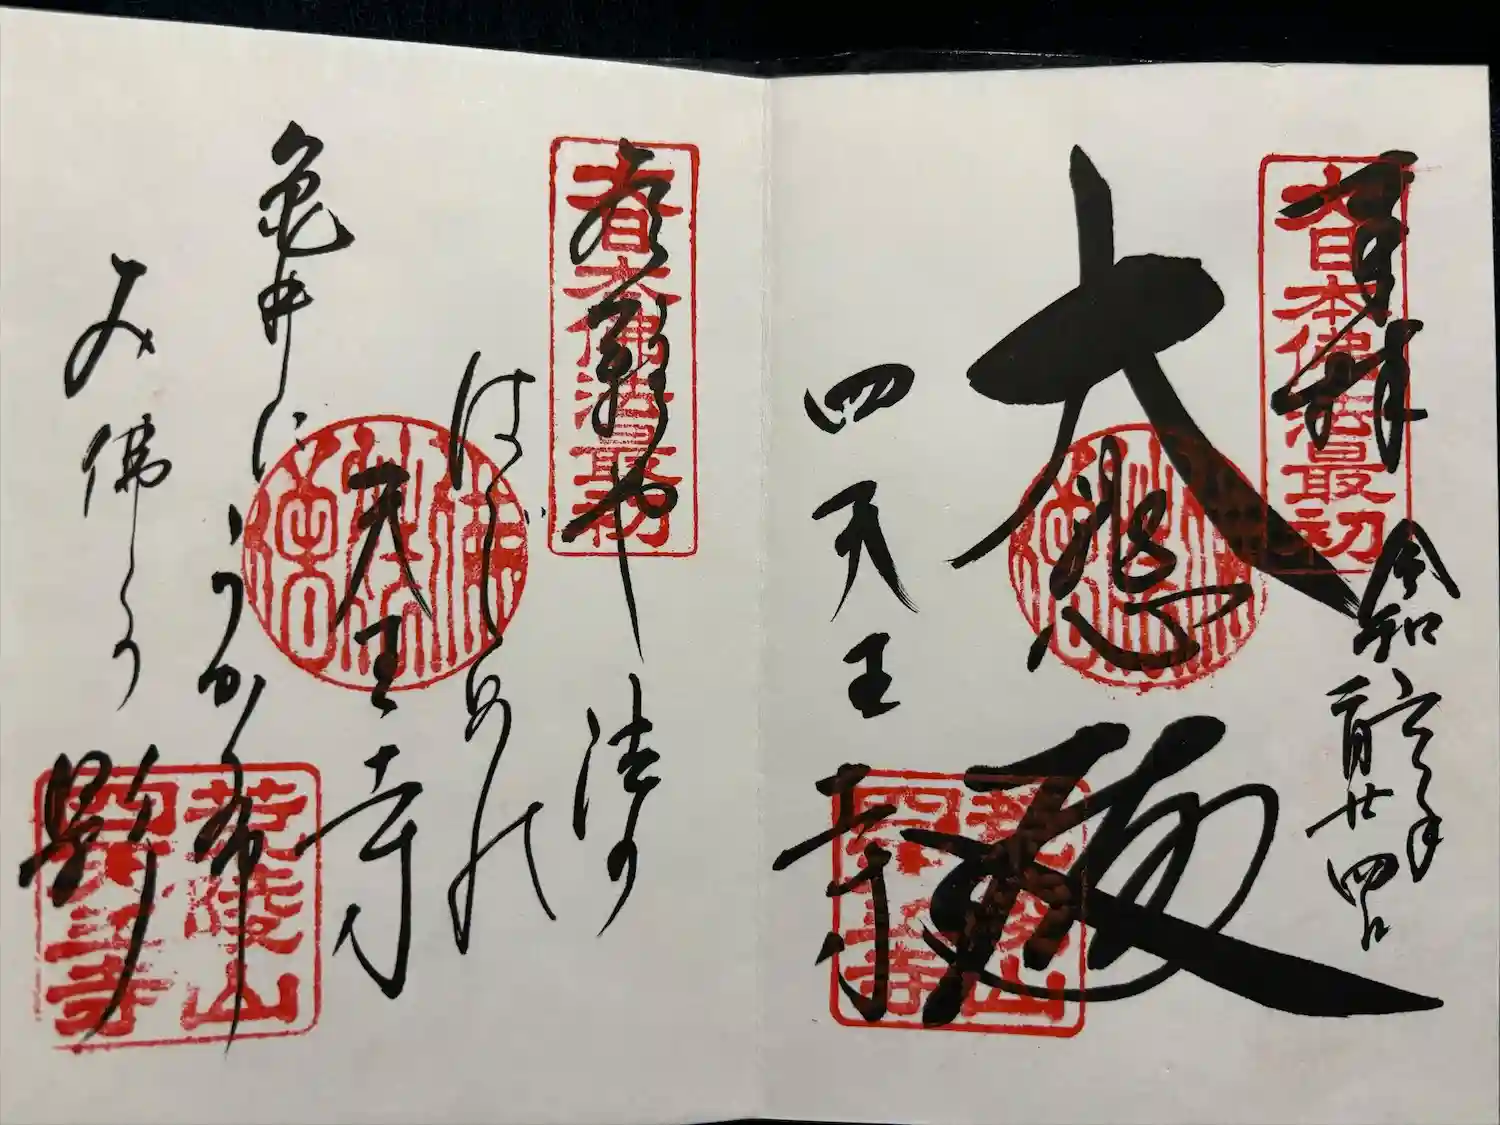 奉拝
令和六年
二月廿四日
大悲殿
四天王寺
大日本佛法最初
荒陵山
四天王寺
有難や法の
はじめの
天王寺
亀井にうかぶ
み佛の影
大日本佛法最初
荒陵山
四天王寺